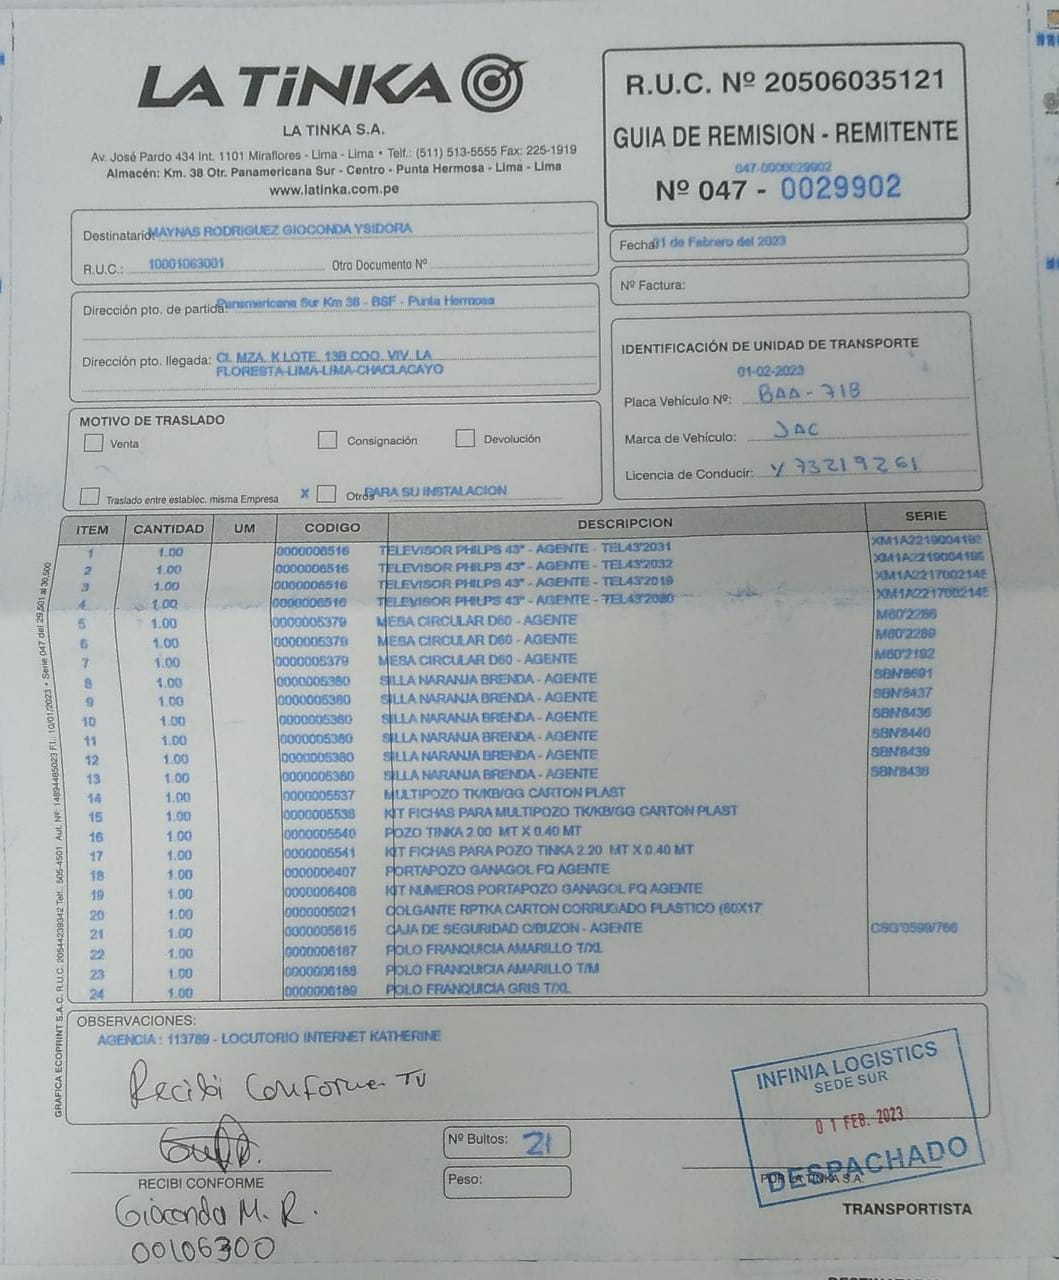 LA TiNKA
LA TINKA S.A.
Av. José Pardo 434 Int. 1101 Miraflores - Lima - Lima • Telf.: (511) 513-5555 Fax: 225-1919
Almacén: Km. 38 Otr. Panamericana Sur - Centro - Punta Hermosa - Lima - Lima
www.latinka.com.pe
R.U.C. Nº 20506035121
GUIA DE REMISION - REMITENTE
047-0000029902
Nº 047 - 0029902
Destinatario: MAYNAS RODRIGUEZ GIOCONDA YSIDORA
R.U.C.: 10001063001 Otro Documento Nº
Fecha: 01 de Febrero del 2023
Nº Factura:
Dirección pto. de partida: Panamericana Sur Km 38 - BSF - Punta Hermosa
Dirección pto. llegada: CL MZA. K LOTE. 13B COO. VIV. LA
FLORESTA-LIMA-LIMA-CHACLACAYO
IDENTIFICACIÓN DE UNIDAD DE TRANSPORTE
01-02-2023
Placa Vehículo Nº: BAA-718
Marca de Vehículo: JAC
Licencia de Conducir: Y 73219261
MOTIVO DE TRASLADO
Venta Consignación Devolución
Traslado entre establec. misma Empresa X Otros PARA SU INSTALACION
ITEM CANTIDAD UM CODIGO DESCRIPCION SERIE
1 1.00 0000006516 TELEVISOR PHILPS 43" - AGENTE - TEL43'2031
2 1.00 0000006516 TELEVISOR PHILPS 43" - AGENTE - TEL43'2032
3 1.00 0000006516 TELEVISOR PHILPS 43" - AGENTE - TEL43'2019 XM1A221700214E
4 1.00 0000006516 TELEVISOR PHILPS 43" - AGENTE - XM1A221700214E
5 1.00 0000005379 MESA CIRCULAR D60 - AGENTE M60'2286
6 1.00 0000005379 MESA CIRCULAR D60 - AGENTE M60'2289
7 1.00 0000005379 MESA CIRCULAR D60 - AGENTE M60'2192
8 1.00 0000005380 SILLA NARANJA BRENDA - AGENTE SBN'8691
9 1.00 0000005380 SILLA NARANJA BRENDA - AGENTE SBN'8437
10 1.00 0000005380 SILLA NARANJA BRENDA - AGENTE SBN'8436
11 1.00 0000005380 SILLA NARANJA BRENDA - AGENTE SBN'8440
12 1.00 0000005380 SILLA NARANJA BRENDA - AGENTE SBN'8439
13 1.00 0000005380 SILLA NARANJA BRENDA - AGENTE SBN'8438
14 1.00 0000005537 MULTIPOZO TK/KB/GG CARTON PLAST
15 1.00 0000005538 KIT FICHAS PARA MULTIPOZO TK/KB/GG CARTON PLAST
16 1.00 0000005540 POZO TINKA 2.00 MT X 0.40 MT
17 1.00 0000005541 KIT FICHAS PARA POZO TINKA 2.20 MT X 0.40 MT
18 1.00 0000006407 PORTAPOZO GANAGOL FQ AGENTE
19 1.00 0000006408 KIT NUMEROS PORTAPOZO GANAGOL FQ AGENTE
20 1.00 0000005021 COLGANTE RPTKA CARTON CORRUGADO PLASTICO (60X17
21 1.00 0000005615 CAJA DE SEGURIDAD C/BUZON - AGENTE CSG'0599/766
22 1.00 0000006187 POLO FRANQUICIA AMARILLO T/XL
23 1.00 0000006188 POLO FRANQUICIA AMARILLO T/M
24 1.00 0000006189 POLO FRANQUICIA GRIS T/XL
GRAFICA ECOPRINT S.A.C. R.U.C. 20544239342 Telf.: 505-4501 Aut. Nº: 14894485023 F.I.: 10/01/2023 • Serie 047 del 29,501 al 30,500
OBSERVACIONES:
AGENCIA : 113789 - LOCUTORIO INTERNET KATHERINE
Recibi Conforme TV
INFINIA LOGISTICS
SEDE SUR
01 FEB. 2023
DESPACHADO
Nº Bultos: 21
Peso:
RECIBI CONFORME
Gioconda M. R.
00106300
POR LA TINKA S.A.
TRANSPORTISTA